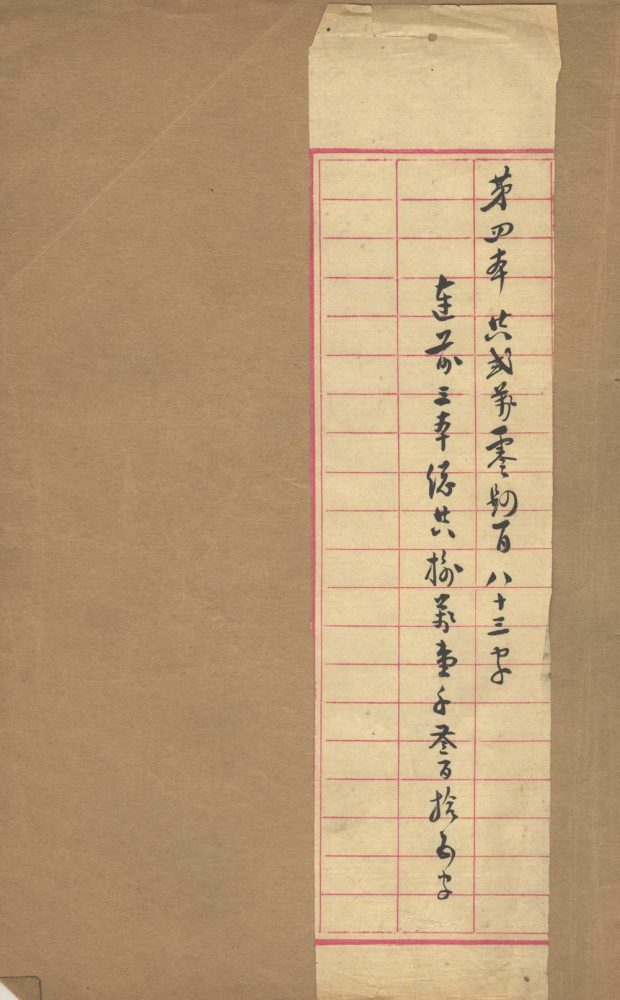 第四本 共弍萬零剔百八十三字
連前三本總共拾萬壹千叁百拾五字